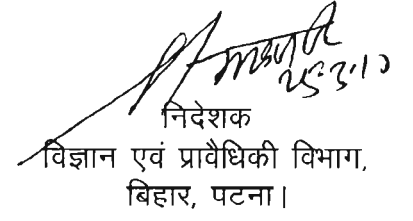 निदेशक
विज्ञान एवं प्रावैधिकी विभाग,
बिहार, पटना।